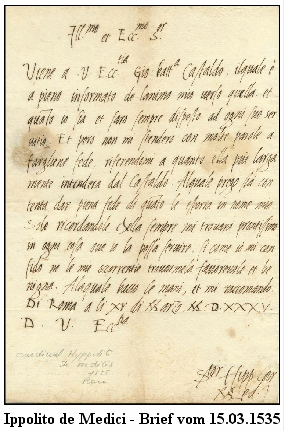 Ill.mo et Ecc.mo S.or
Viene a V. Ecc.tia Gio. Batt.a Castaldo, ilquale è
a pieno informato de l'animo mio verso quella et
quanto io sia et sarò sempre disposto ad ogni suo ser
vitio. Et però non mi stenderò con molte parole a
fargliene fede, riferendomi a quanto ella più larga
mente intenderà dal Castaldo. Alquale prego sia con
tenta dar piena fede di quanto le esporrà in nome mio
che sempre mi troverà prontissimo
in ogni cosa ove io la possa servire. Si come io mi con
fido
baso le mani, et mi raccomando
Di Roma a li XV di Marzo M.D.XXXV.
D. V. Ecc.tia
medicus Hippolito
de medicis
1535
Rom
Ippolito de Medici - Brief vom 15.03.1535